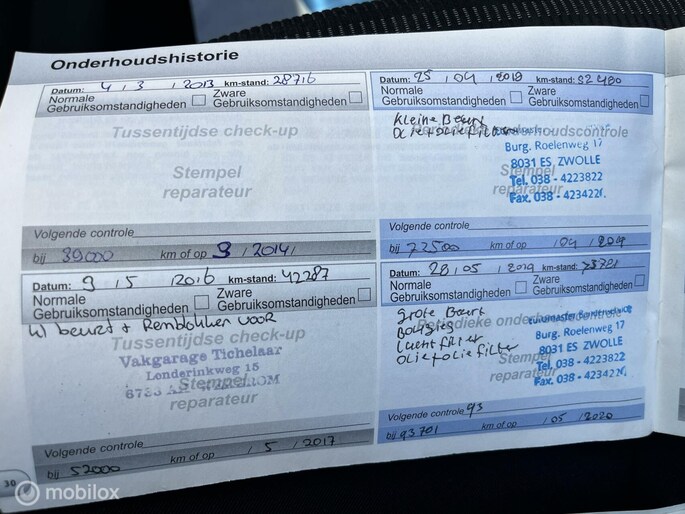 Onderhoudshistorie
Datum: 4 / 3 / 2013 km-stand: 28716
Normale Gebruiksomstandigheden
Zware Gebruiksomstandigheden
Tussentijdse check-up
Stempel
reparateur
Volgende controle
bij 39000 km of op 9 / 2014
Datum: 9 / 5 / 2016 km-stand: 42287
Normale Gebruiksomstandigheden
Zware Gebruiksomstandigheden
beurt + Remblokken voor
Tussentijdse check-up
Vakgarage Tichelaar
Londerinkweg 15
Stempel
reparateur
Volgende controle
bij 52000 km of op / 5 / 2017
30
Datum: 25 / 04 / km-stand:
Normale Gebruiksomstandigheden
Zware Gebruiksomstandigheden
Kleine Beurt
Burg. Roelenweg 17
8031 ES, ZWOLLE
Stempel
Tel. 038 - 4223822
reparateur
Fax. 038 - 4234220
Volgende controle
bij 72500 km of op / 04 /
Datum: 28 / 05 / 2019 km-stand: 73701
Normale Gebruiksomstandigheden
Zware Gebruiksomstandigheden
Grote Beurt
Bougies
Luchtfilter
Olie + olie filter
Burg. Roelenweg 17
8031 ES ZWOLLE
Stempel
Tel. 038 - 4223822
reparateur
Fax. 038 - 4234220
Volgende controle 93
bij 93701 km of op / 05 / 2020
mobilox